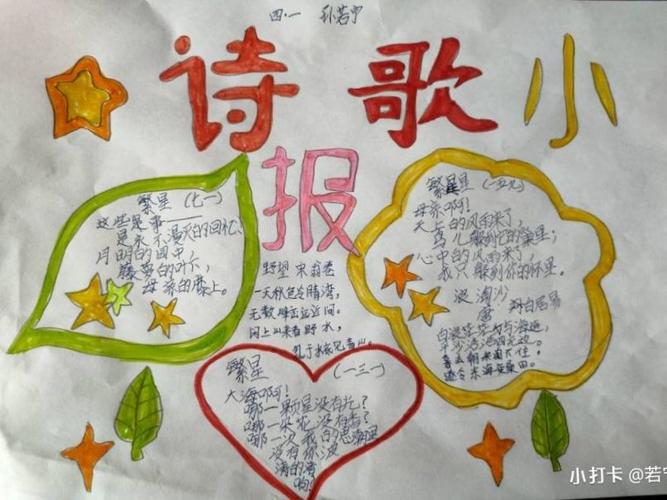 四.一 孙若宁
诗歌小
报
繁星（七一）
这些是事——
是永不漫灭的回忆、
月明的园中
藤萝的叶下，
母亲的膝上。
繁星（一五九）
母亲啊！
天上的风雨来了，
鸟儿躲到它的巢里；
心中的风雨来了，
我只躲到你的怀里。
浪淘沙
唐 白居易
白浪茫茫与海连，
平沙浩浩四无边。
暮去朝来淘不住，
遂令东海变桑田。
野望 宋 翁卷
一天秋色冷晴湾，
无数峰峦远近间。
闲上山来看野水，
繁星（一三一）
大海啊！
哪一颗星没有光？
哪一朵花没有香？
哪一次我的思潮里
没有你波
涛的清
响？
小打卡 @若宁